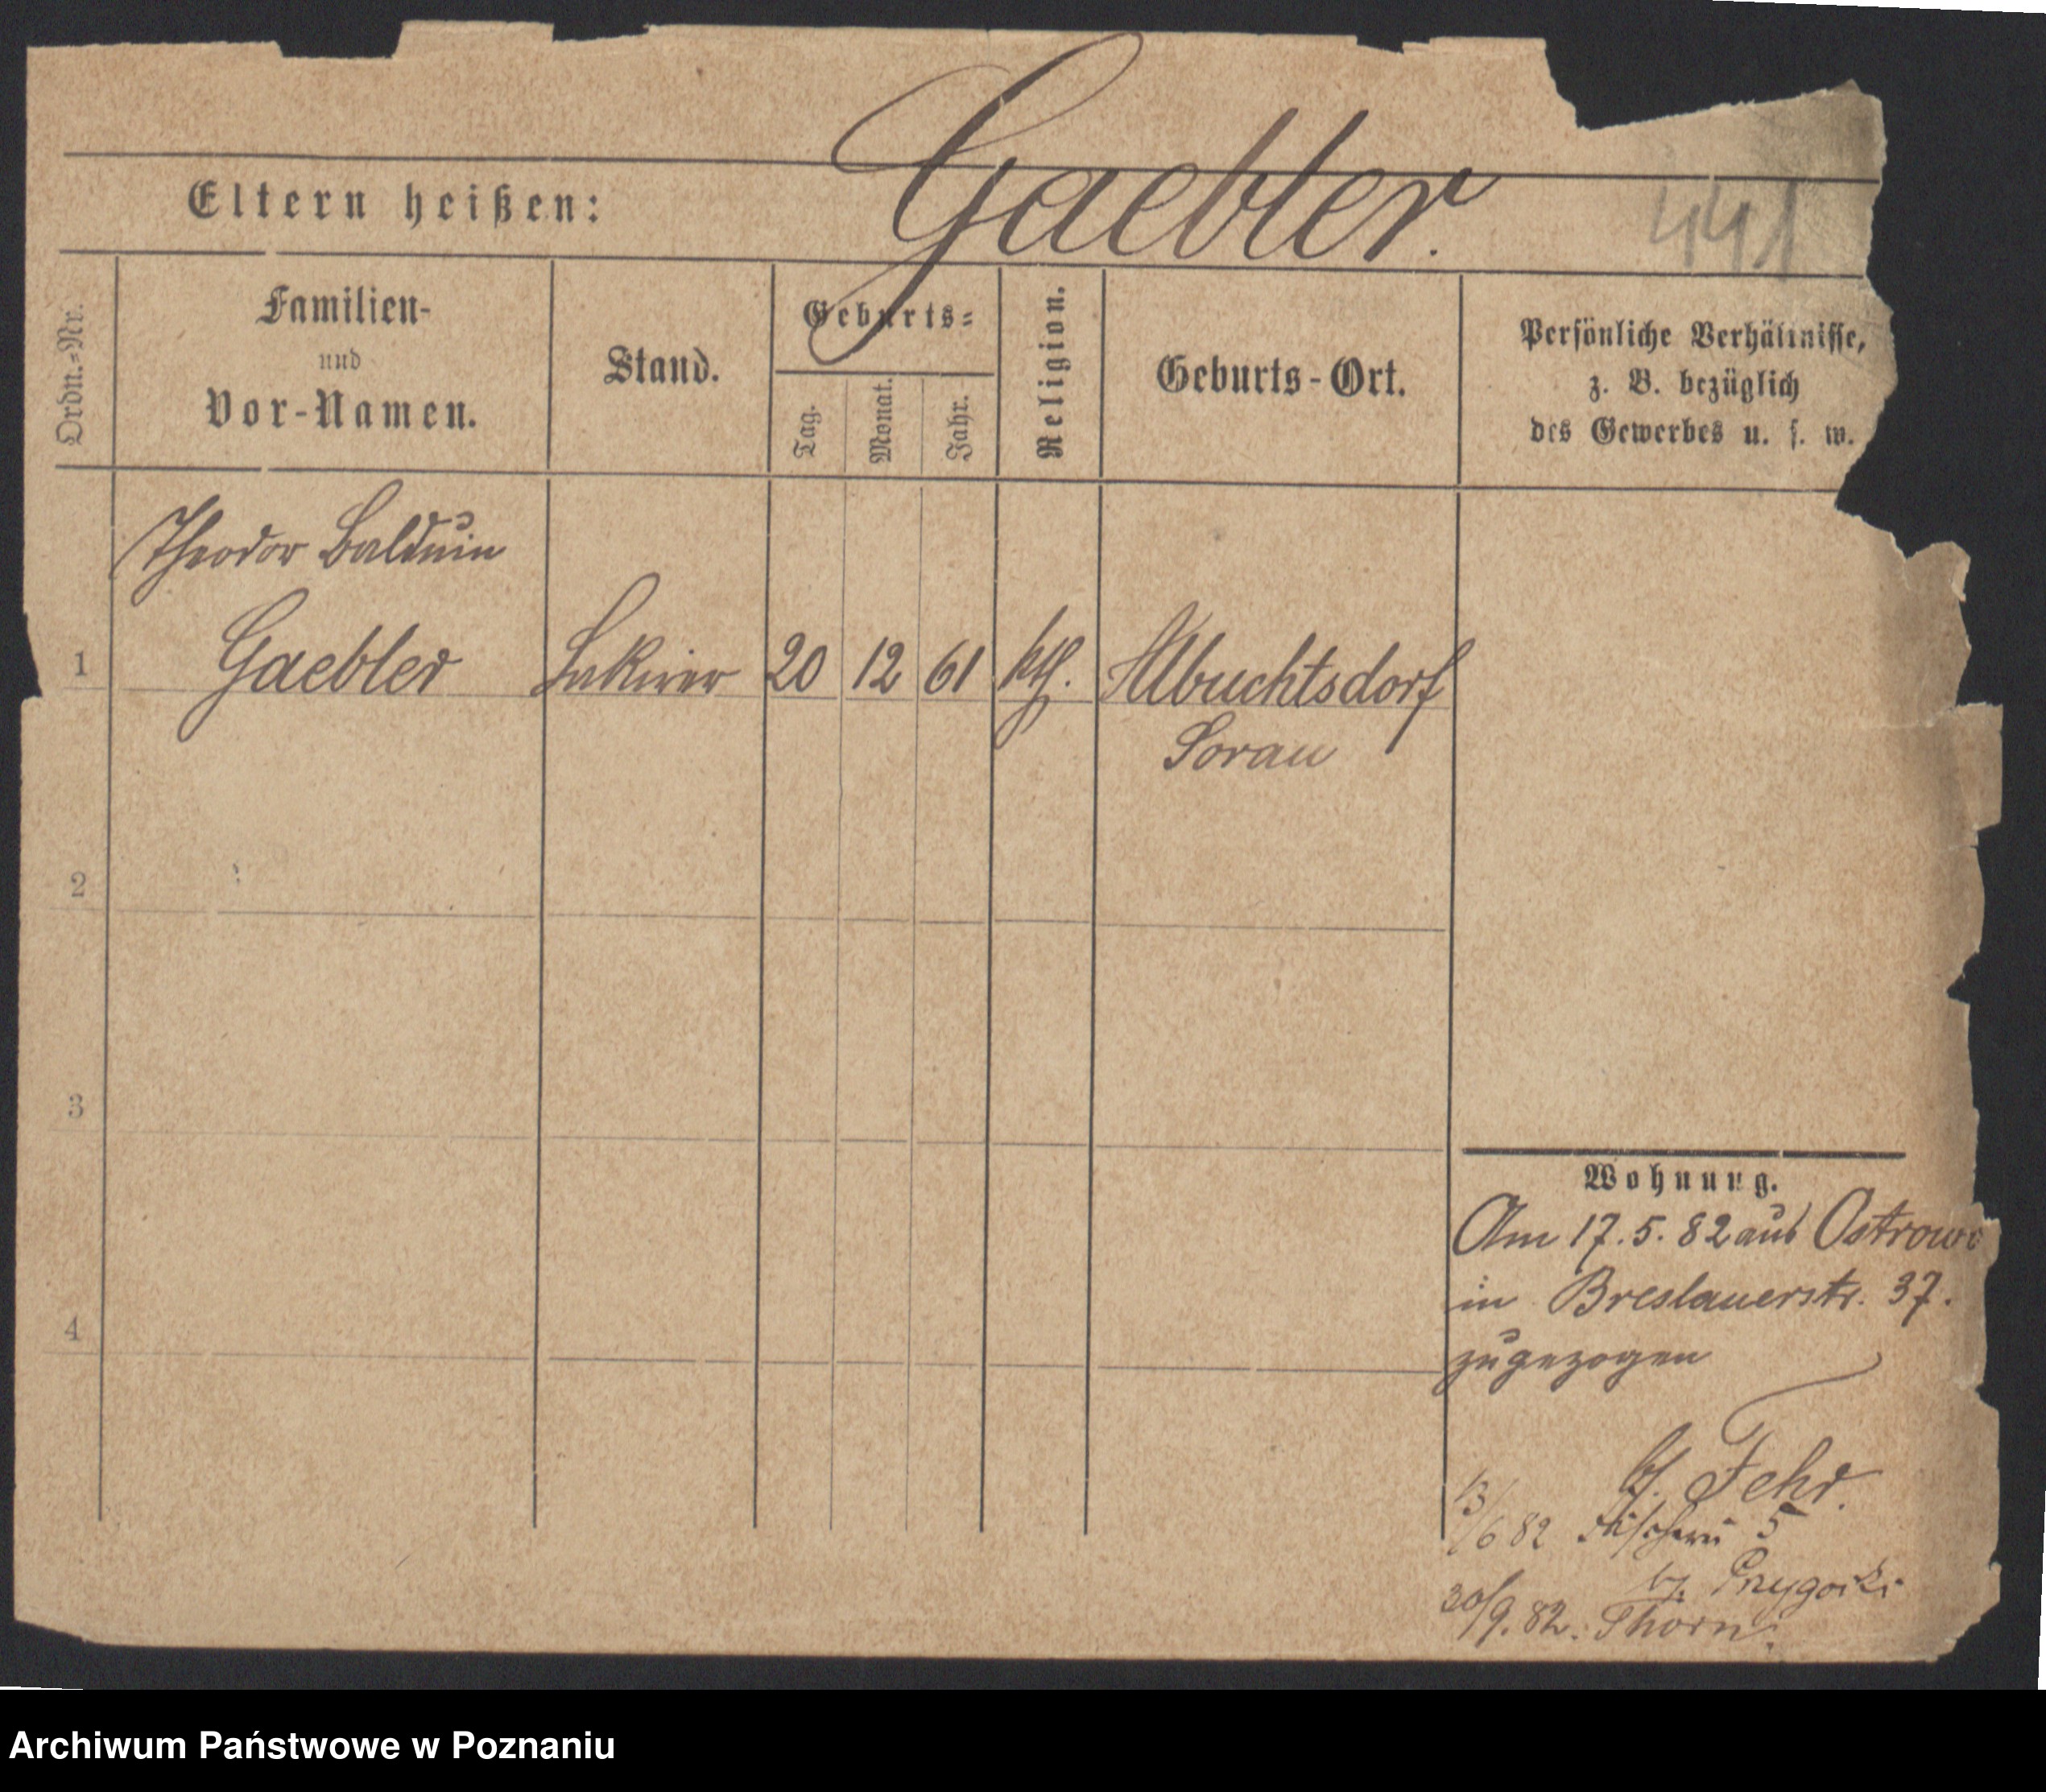 Gaebler.
Eltern heißen:
441
Ordn.-Nr.
Familien-
und
Vor-Namen.
Stand.
Geburts-
Tag.
Monat.
Jahr.
Religion.
Geburts-Ort.
Persönliche Verhältnisse,
z. B. bezüglich
des Gewerbes u. s. w.
Theodor Balduin
1 Gaebler Lakirer 20 12 61 kth. Albrechtsdorf
Sorau
2
3
4
Wohnung.
Am 17.5.82 aus Ostrowo
in Breslauerstr. 37.
zugezogen
b/. Fehr.
13/6 82 Fischerei 5
b/.
30/9.82. Thorn.
Archiwum Państwowe w Poznaniu